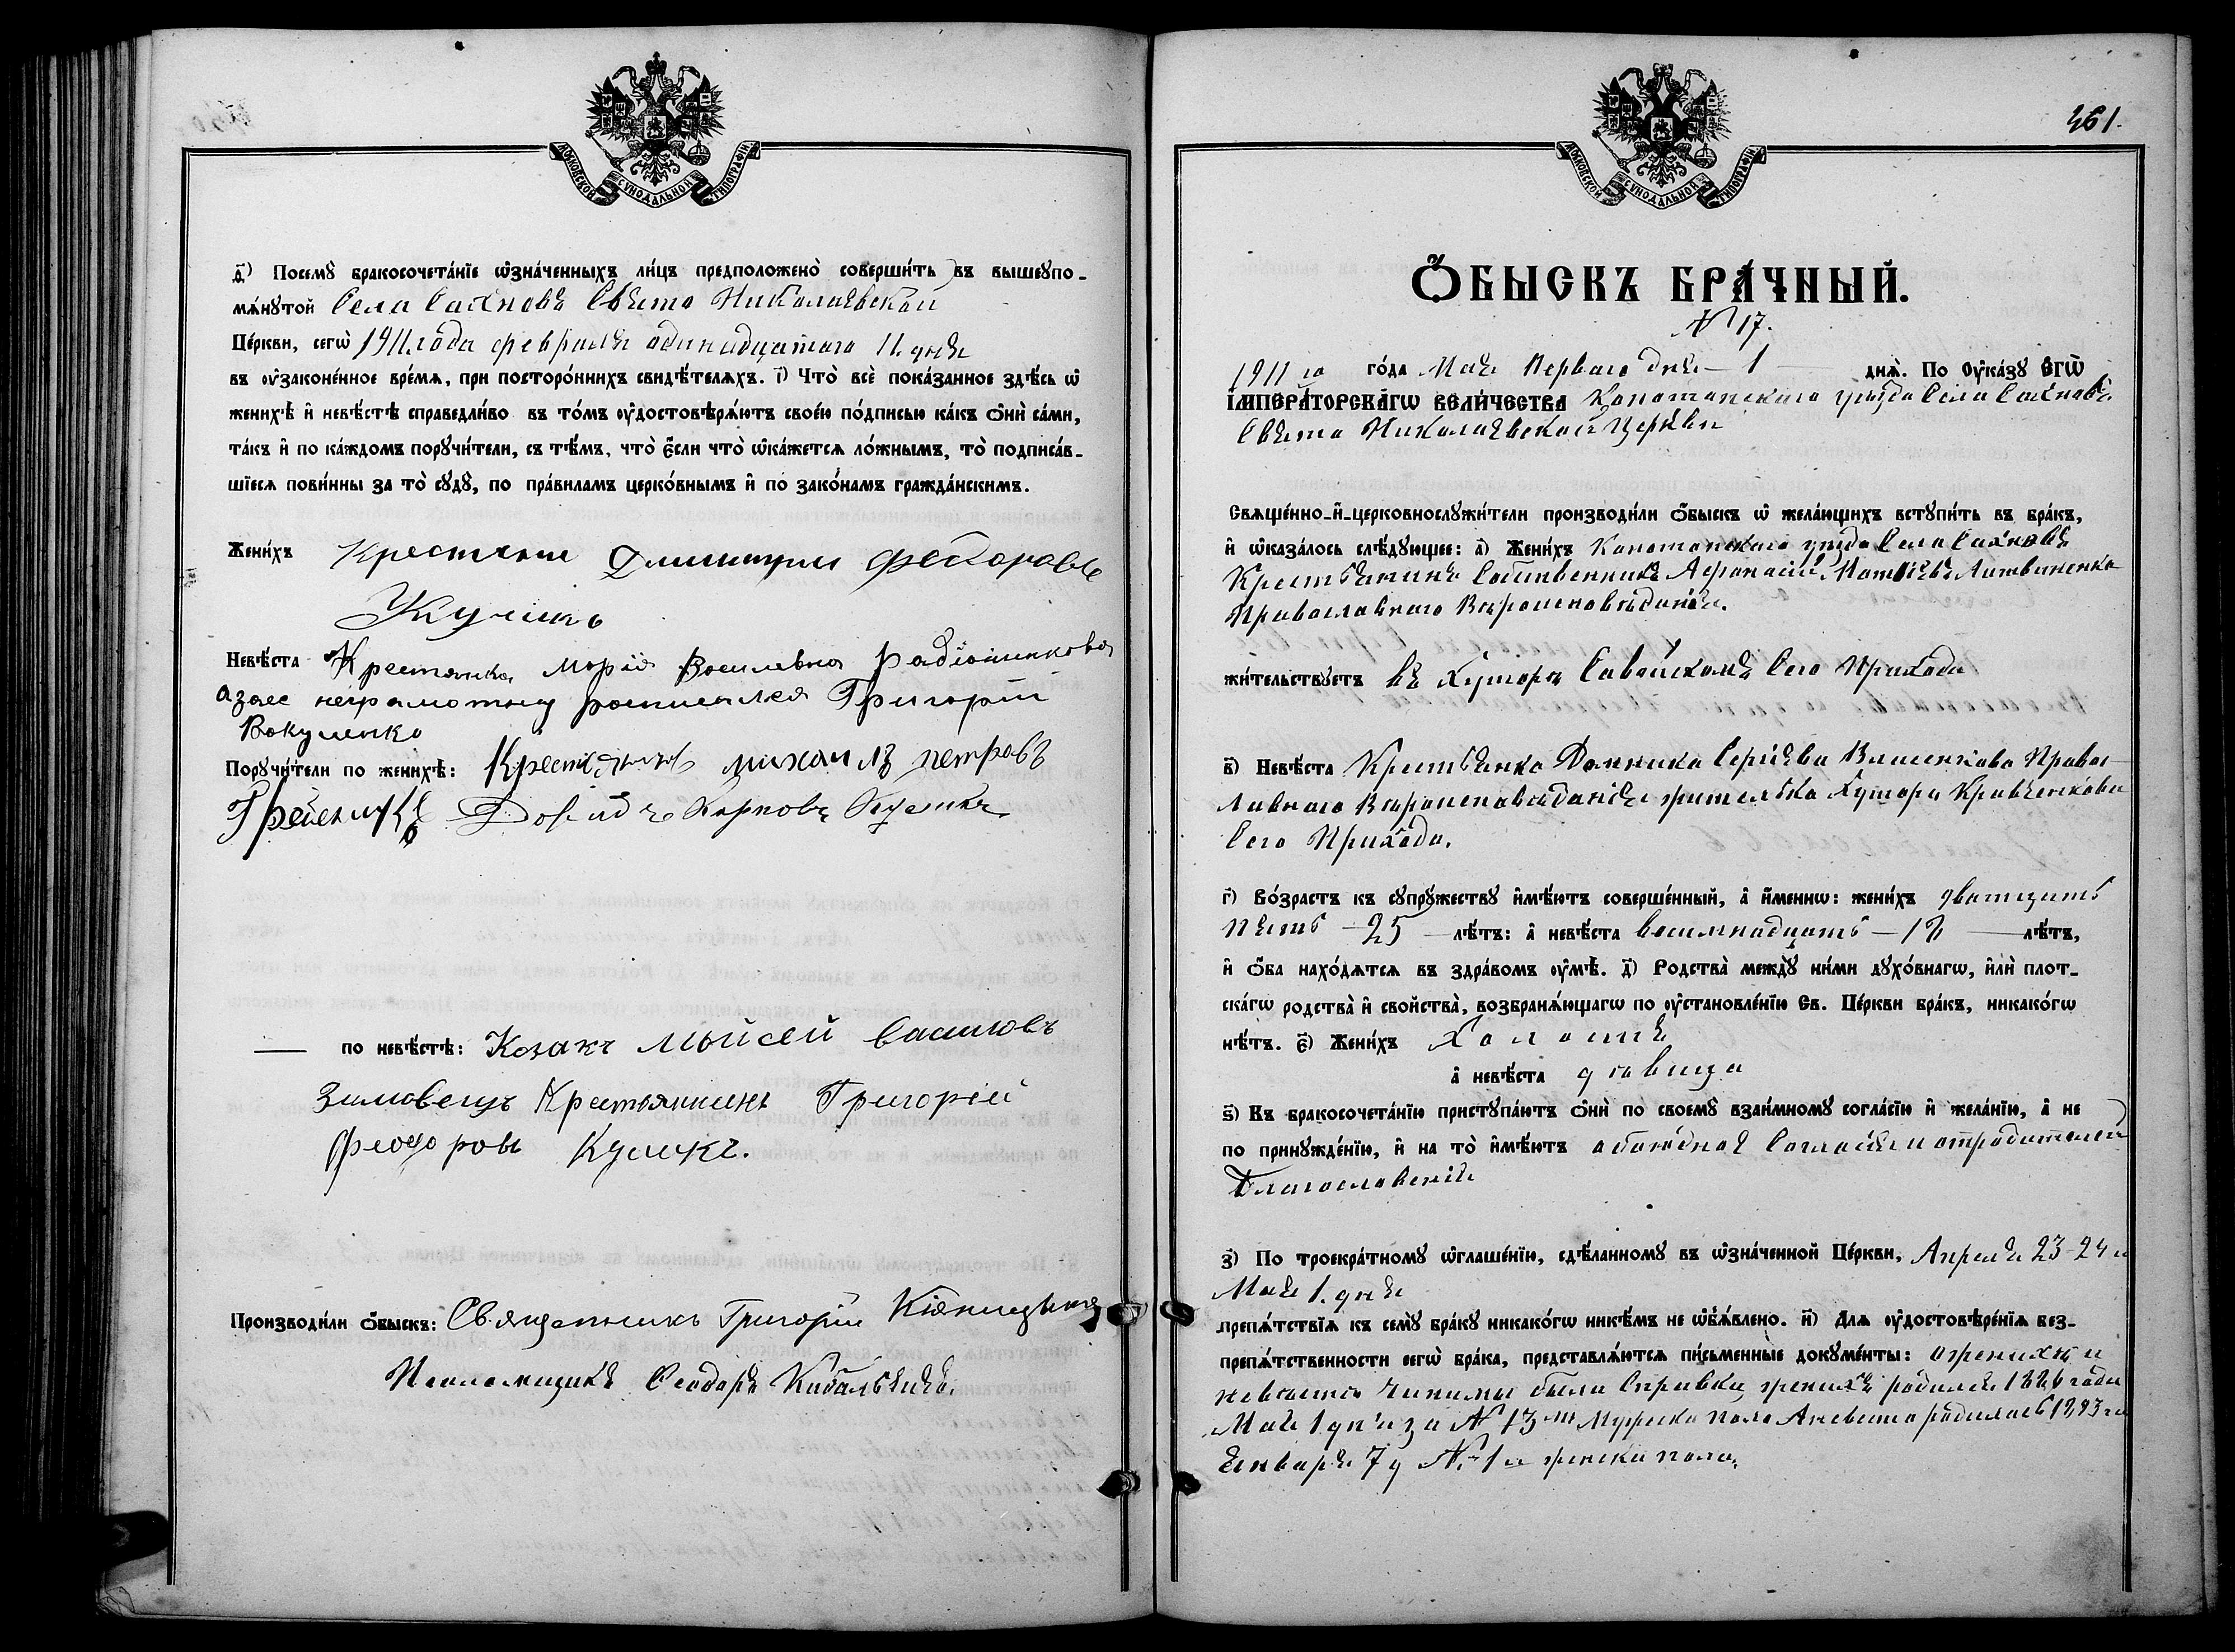 МОСКОВСКОЙ СУНОДАЛЬНОЙ ТИПОГРАФІИ
д҃) Посемꙋ̀ бракосочета́нїе ѡ҆зна́ченныхъ ли́цъ предположено̀ соверши́ть въ вышеꙋпо-
мѧ́нꙋтой Села Сахновъ Свято Николаевской
Це́ркви, сегѡ̀ 1911 года февраля одинадцатого 11 дня
въ оу҆законе́нное вре́мѧ, при посторо́ннихъ свидѣ́телѧхъ. і҃) Что̀ всѐ пока́занное здѣ́сь ѡ҆
женихѣ̀ и҆ невѣ́стѣ справедли́во въ то́мъ оу҆достовѣрѧ́ютъ свое́ю по́дписью ка́къ ѻ҆нѝ са́ми,
та́къ и҆ по ка́ждомъ порꙋчи́тели, съ тѣ́мъ, что̀ є҆́сли что̀ ѡ҆ка́жетсѧ ло́жнымъ, то̀ подписа́в-
шїесѧ пови́нны за то̀ сꙋдꙋ̀, по пра́виламъ церко́внымъ и҆ по зако́намъ гражда́нскимъ.
Жени́хъ Крестяни Длимитрии Федоровъ
Кулико
Невѣ́ста Крестянка Морія Восилевна Радіоненкова
азаее неграмотную росписался Григорій
Вокуленко
Порꙋчи́тели по женихѣ̀: Крестянинъ михаилъ петровъ
Гребеникъ Довидъ Карповъ Куликъ
— по невѣ́стѣ: Козакъ Мойсей Василовъ
Зимовецъ Крестьянинъ Григорій
Феодоровъ Куликъ.
Производи́ли ѻ҆́быскъ: Священникъ Григорій
Псаломщикъ Феодоръ
МОСКОВСКОЙ СУНОДАЛЬНОЙ ТИПОГРАФІИ
461.
Ѻ҆́БЫСКЪ БРА́ЧНЫЙ.
№ 17.
1911 го го́да Мая Перваго дня — 1 — днѧ̀. По Оу҆ка́зꙋ ЕГѠ̀
ІМПЕРА́ТОРСКАГѠ ВЕЛИ́ЧЕСТВА Конотопского уезда Села Сахновъ
Свято Николаевской Церкви
Свѧще́нно-и҆-церковнослꙋжи́тели производи́ли ѻ҆́быскъ ѡ҆ жела́ющихъ встꙋпи́ть въ бра́къ,
и҆ ѡ҆каза́лось слѣ́дꙋющее: а҃) Жени́хъ Конотопского уезда Села Сахновъ
Крестьянинъ Собственникъ Афонасій Матвіевъ Литвиненко
Православного Вероисповеданія.
жи́тельствꙋетъ въ Хуторе Савойскомъ Сего Прихода
в҃) Невѣ́ста Крестьянка Домника Сергіева Власенкова Право-
славного Вероисповеданія жителька Хутора Кравченкова
Сего Прихода.
г҃) Во́зрастъ къ сꙋпрꙋ́жествꙋ и҆мѣ́ютъ соверше́нный, а҆ и҆́меннѡ: жени́хъ двацать
пять — 25 — лѣ́тъ: а҆ невѣ́ста восимнадцать — 18 — лѣ́тъ,
и҆ ѻ҆́ба нахо́дѧтсѧ въ здра́вомъ оу҆мѣ̀. д҃) Родства̀ междꙋ̀ ни́ми дꙋхо́внагѡ, и҆лѝ плот-
ска́гѡ родства̀ и҆ свойства̀, возбранѧ́ющагѡ по оу҆становле́нїю Св. Це́ркви бра́къ, никако́гѡ
нѣ́тъ. є҃) Жени́хъ Холостъ
а҆ невѣ́ста девица
ѕ҃) Къ бракосочета́нїю пристꙋпа́ютъ ѻ҆нѝ по своемꙋ̀ взаи́мномꙋ согла́сїю и҆ жела́нїю, а҆ не
по принꙋжде́нїю, и҆ на то̀ и҆мѣ́ютъ обоюдное Согласіе и отродителей
Благословеніе
з҃) По троекра́тномꙋ ѡ҆глаше́нїю, сдѣ́ланномꙋ въ ѡ҆зна́ченной Це́ркви, Апреля 23-24 и
Мая 1. дня
препѧ́тствїѧ къ семꙋ̀ бра́кꙋ никако́гѡ никѣ́мъ не ѡ҆б̾ѧ́влено. и҃) Длѧ оу҆достовѣре́нїѧ без-
препѧ́тственности сегѡ̀ бра́ка, представлѧ́ютсѧ пи́сьменные докꙋме́нты: ожених и
невесте чинимы были Справки, жених родился 1886 года
Мая 1 дня за № 13 Мужеска пола Аневеста родилась 1893 го
Января 7 д № 1 й женска пола.